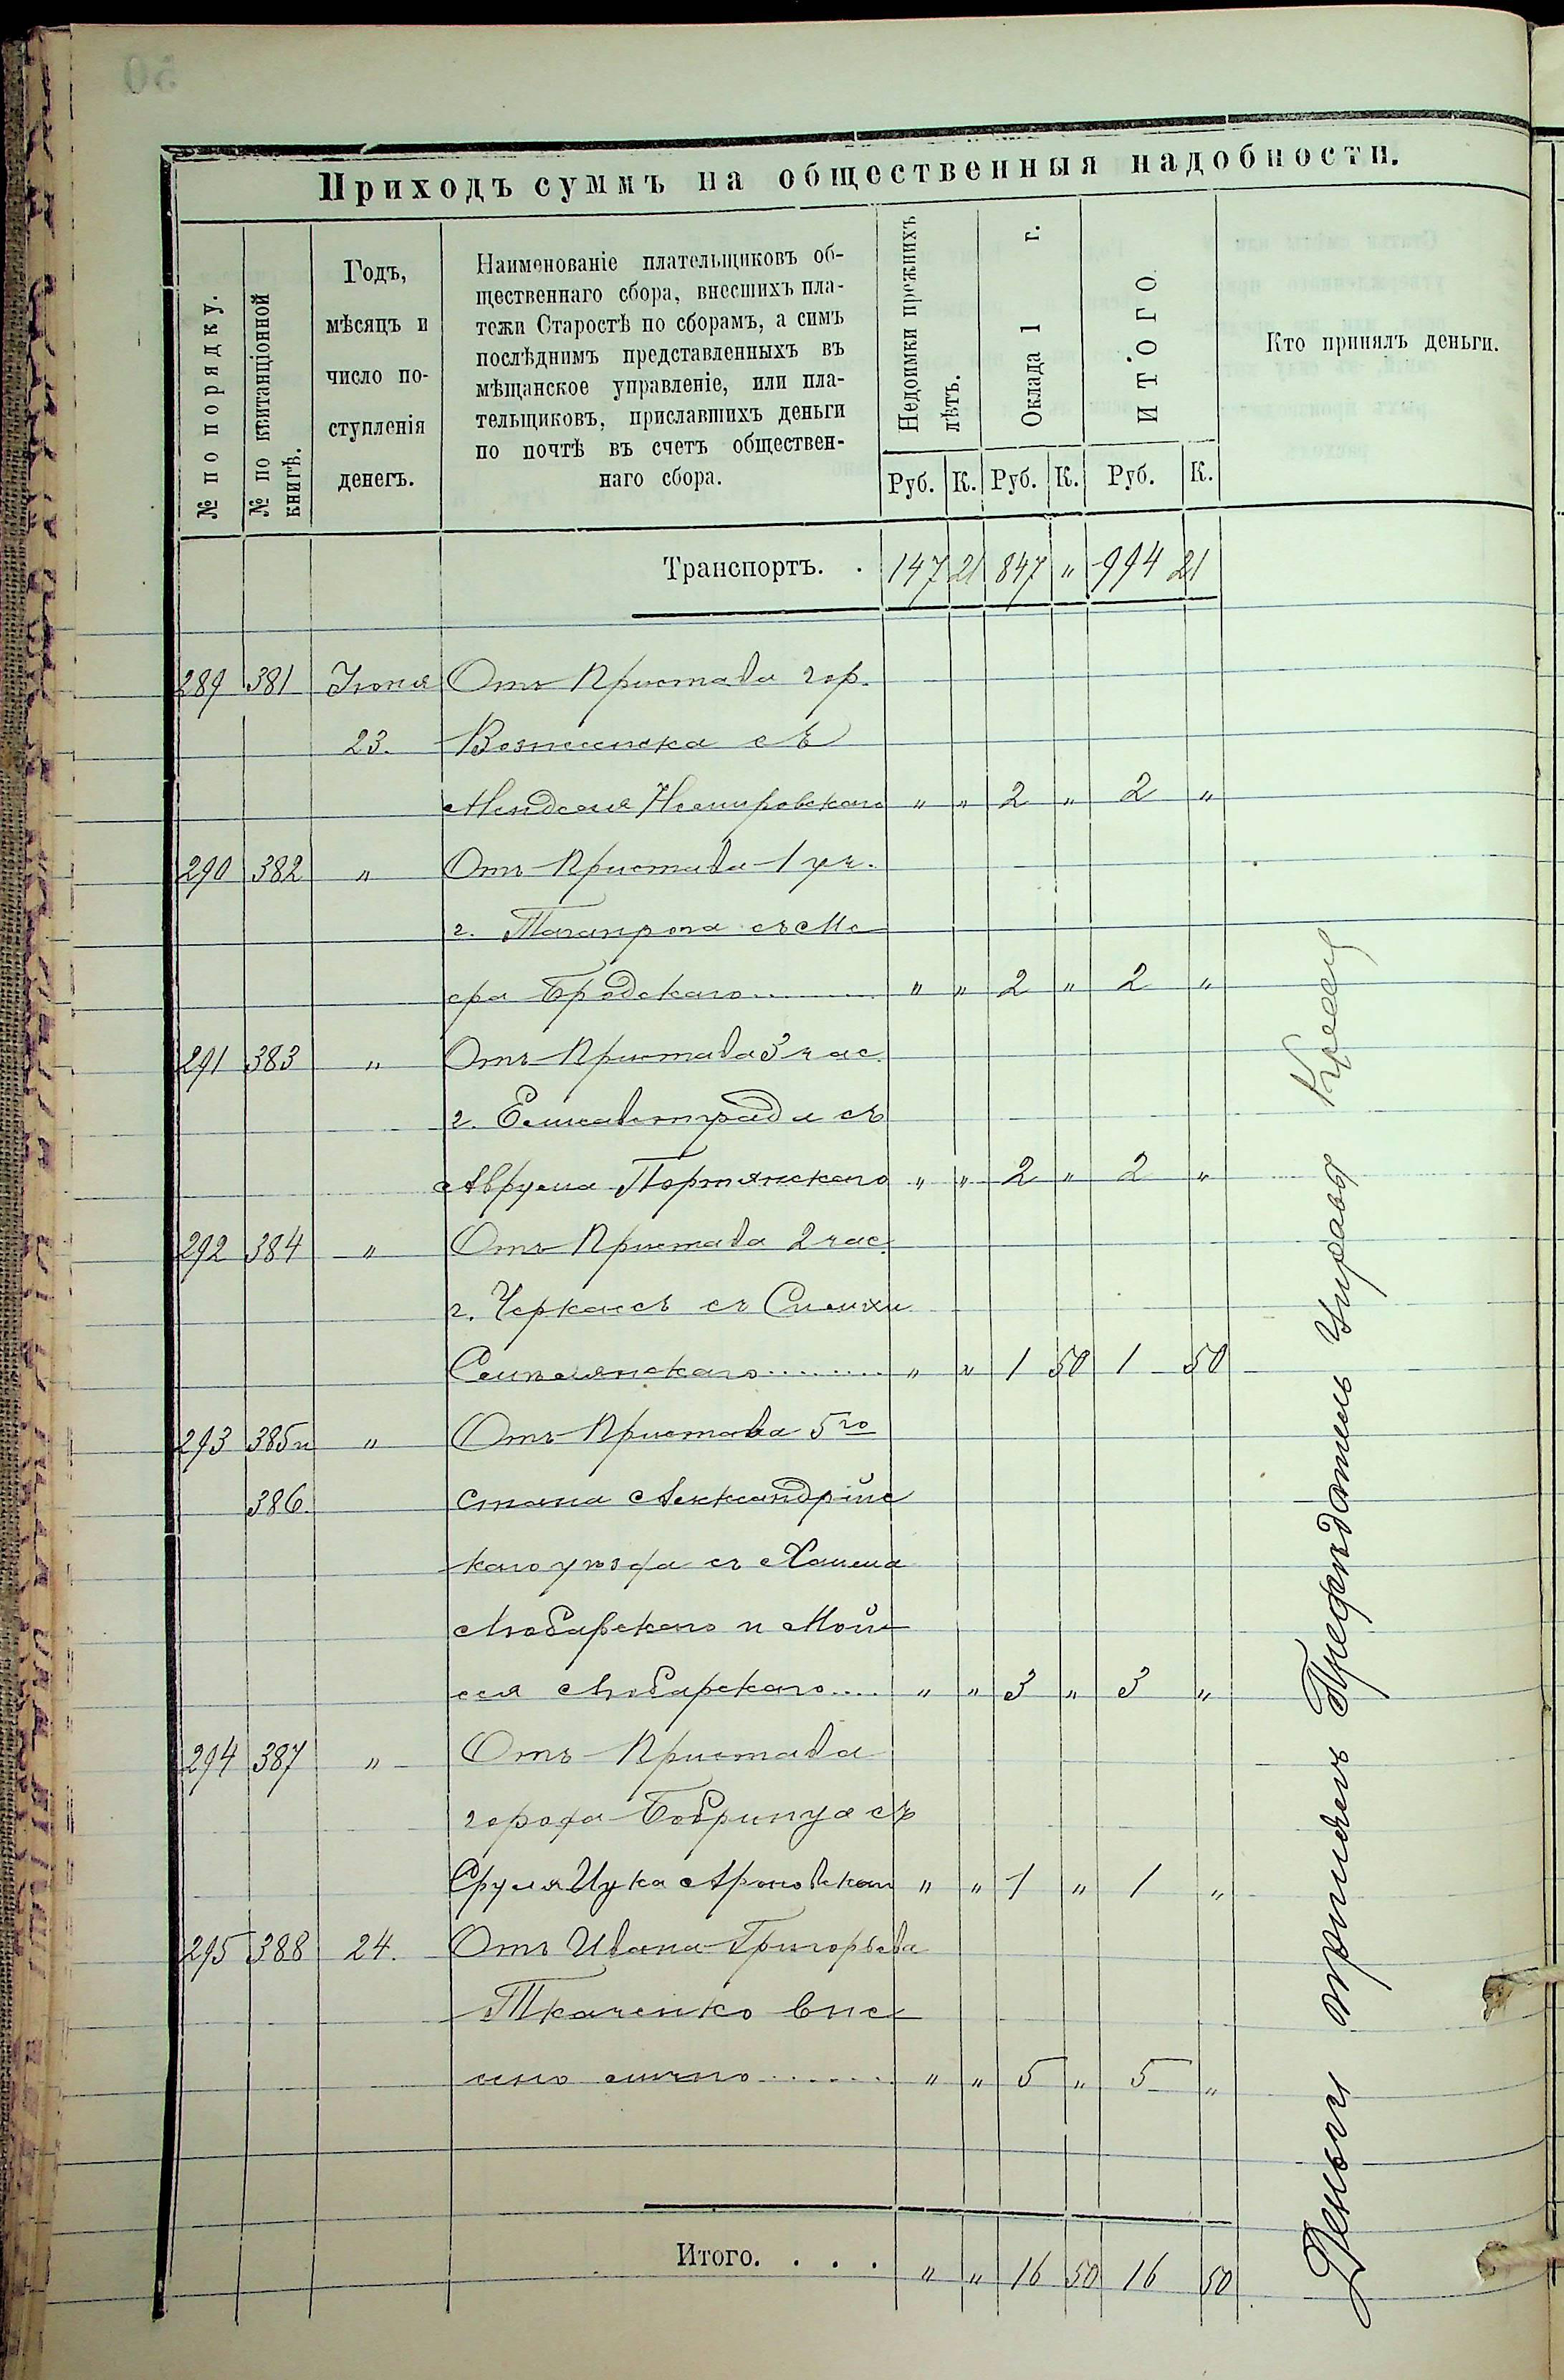 Приходъ суммъ на общественныя надобности.
№ по порядку.
№ по квитанціонной
книгѣ.
Годъ,
мѣсяцъ и
число по-
ступленія
денегъ.
Наименованіе плательщиковъ об-
щественнаго сбора, внесшихъ пла-
тежи Старостѣ по сборамъ, а симъ
послѣднимъ представленныхъ въ
мѣщанское управленіе, или пла-
тельщиковъ, приславшихъ деньги
по почтѣ въ счетъ обществен-
наго сбора.
Недоимки прежнихъ
лѣтъ.
Оклада 1 г.
Итого
Кто принялъ деньги.
Руб. К. Руб. К. Руб. К.
Транспортъ. . 147 21 847 " 994 21
289 381 Іюня Отъ Пристава гор.
23. Вознесенска съ
Менделя Немировскаго " " 2 " 2 "
290 382 " Отъ Пристава 1 уч.
г. Таганрога съ Ме
ера Бродскаго " " 2 " 2 "
291 383 " Отъ Пристава 3 час.
г. Елисаветграда съ
Аврума Портянскаго " " 2 " 2 "
292 384 " Отъ Пристава 2 час.
г. Черкасъ съ Симхи
Смилянскаго " " 1 50 1 50
293 385 и " Отъ Пристава 5го
386. стана Александрійс
каго уѣзда съ Хаима
Любарскаго и Мой
сея Любарскаго .... " " 3 " 3 "
294 387 " Отъ Пристава
города Бобринца съ
Сруля Ицка " " 1 " 1 "
295 388 24. Отъ Ивана Григорьева
Ткаченко вне
сено лично " " 5 " 5 "
Итого. . . . " " 16 50 16 50
Деньги принялъ Предсѣдатель Управы